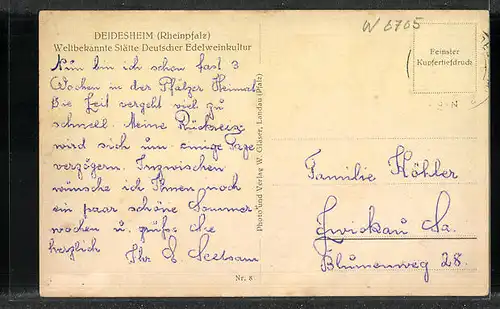 W 6705
DEIDESHEIM (Rheinpfalz)
Weltbekannte Stätte Deutscher Edelweinkultur
Nun bin ich schon fast 3
Wochen in der Pfälzer Heimat.
Die Zeit vergeht viel zu
schnell. Meine Rückreise
wird sich um einige Tage
verzögern. Inzwischen
wünsche ich Ihnen noch
ein paar schöne Sommer
wochen u. grüße Sie
herzlich
Ihr
Nr. 8
Photo und Verlag W. Gläser, Landau (Pfalz)
Feinster
Kupfertiefdruck
Familie Köhler
Zwickau Sa.
Blumenweg 28.